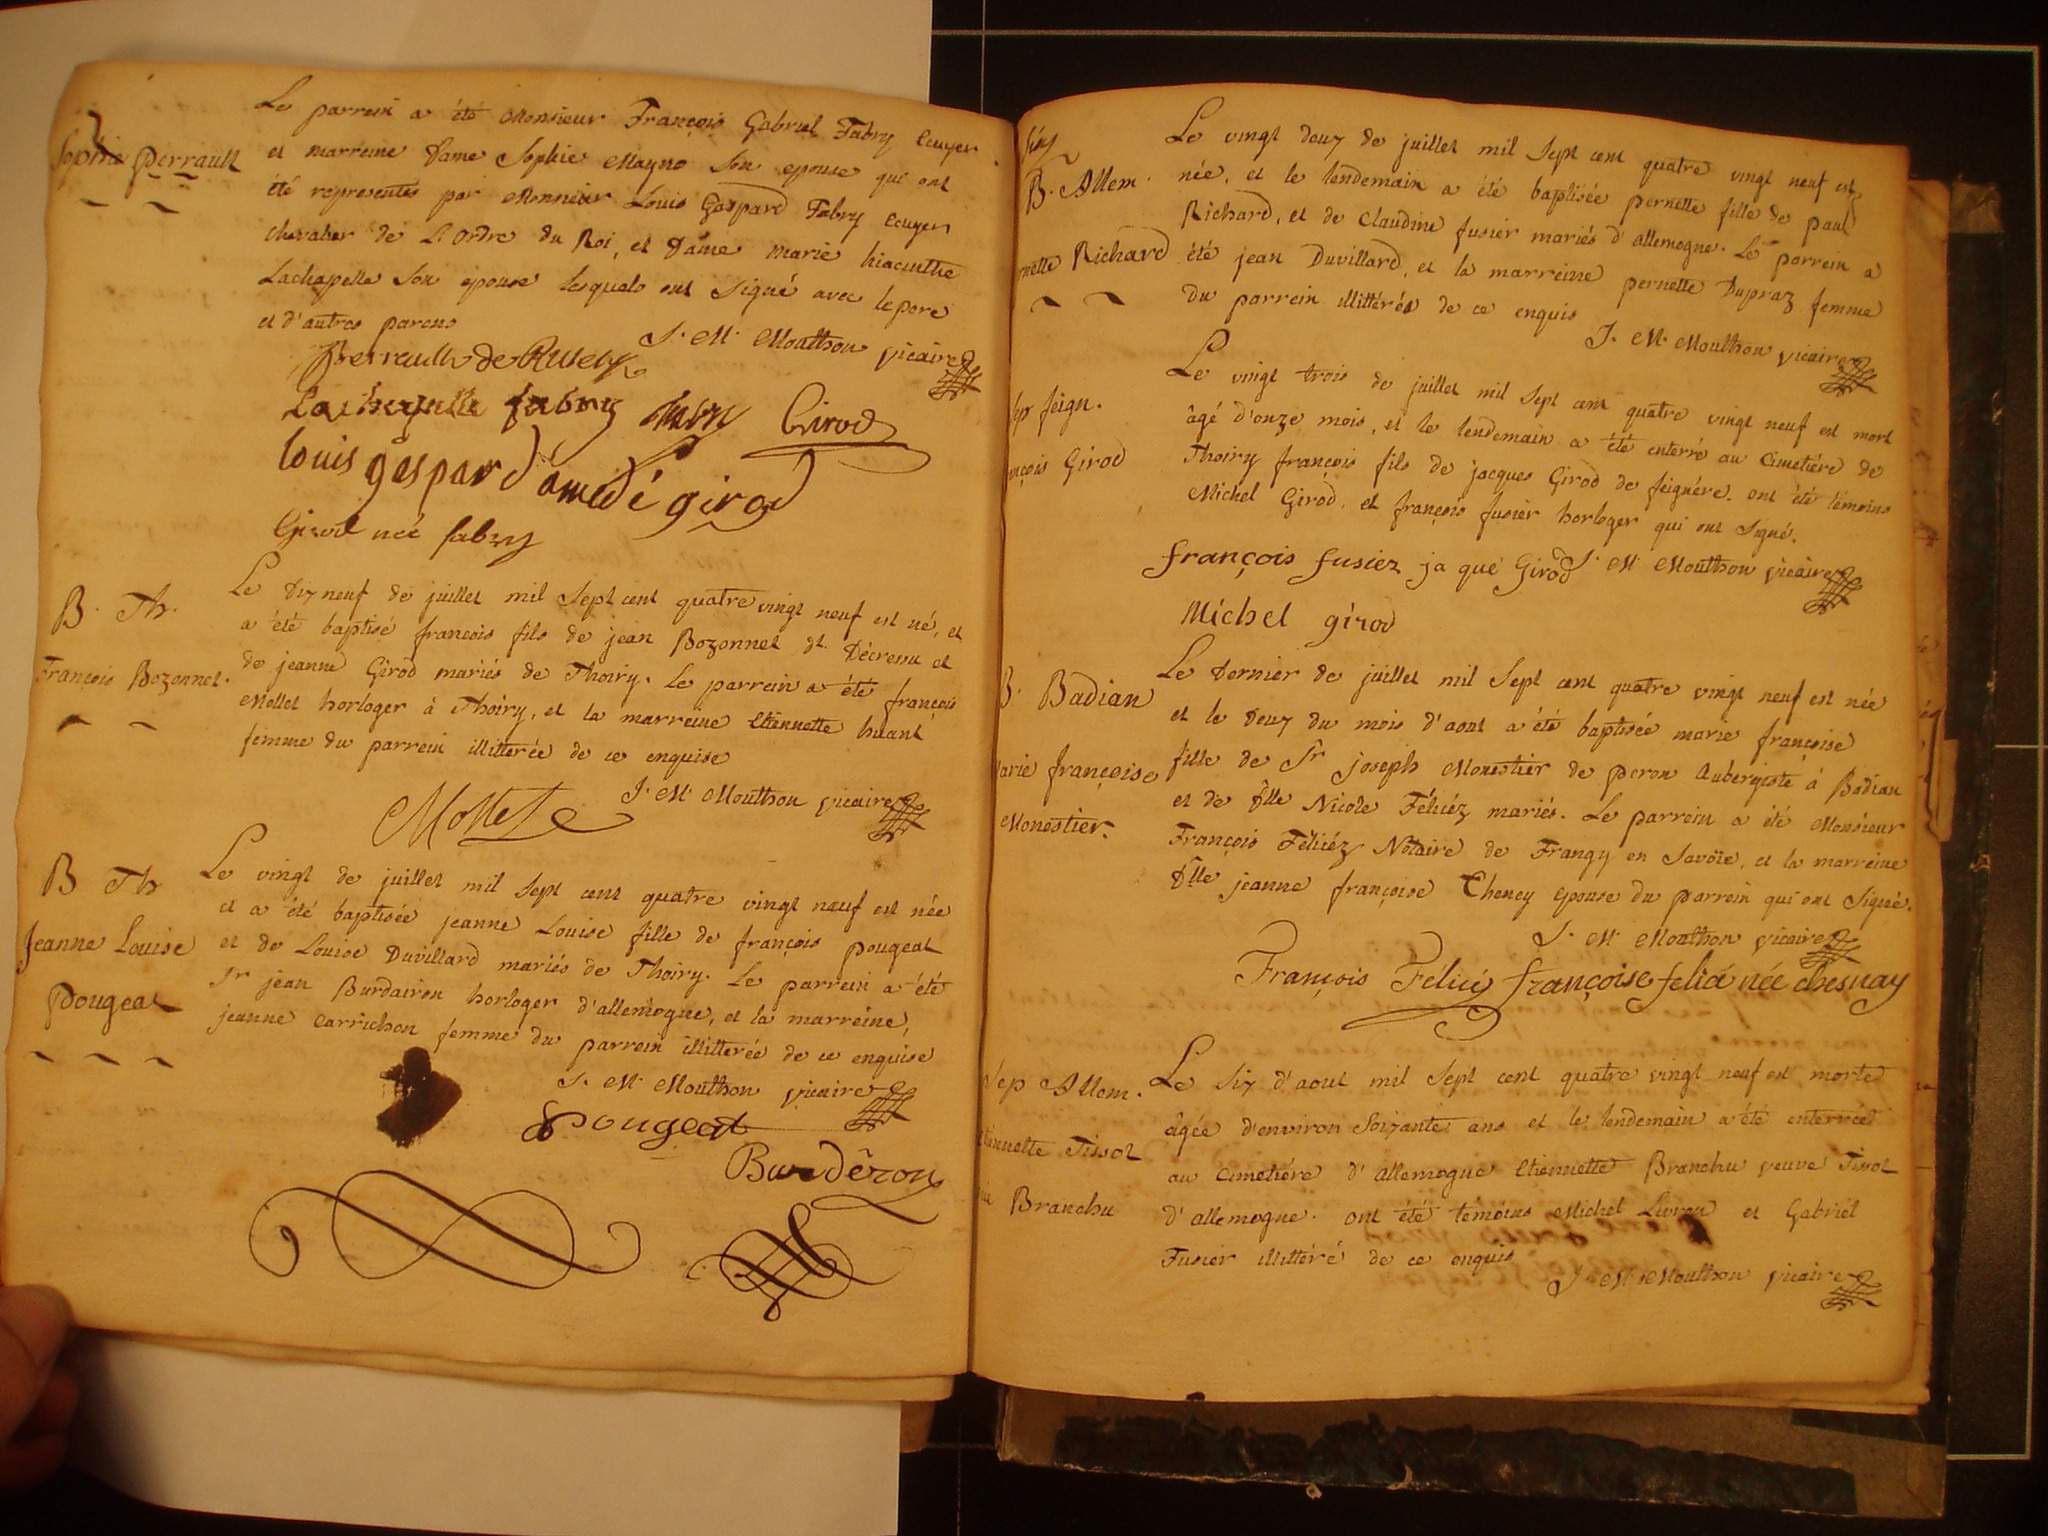 Sophie Perrault
Le parrein a été Monsieur François Gabriel Fabry Ecuyer
et marreine Dame Sophie Mayno son epouse qui ont
été representés par Monsieur Louis Gaspard Fabry Ecuyer
chevalier de L'Ordre du Roi, et Dame Marie hiacinthe
Lachapelle son epouse lesquels ont signé avec le pere
et d'autres parens
J. M. Mouthon vicaire
Perrault de
Lachapelle fabry fabry Girod
louis gaspard amedé girod
Girod née fabry
B. Th.
François Bozonnet.
Le Dix neuf de juillet mil sept cent quatre vingt neuf est né, et
a été baptisé françois fils de jean Bozonnet dt. Décressu et
de jeanne Girod mariés de Thoiry. Le parrein a été françois
Mollet horloger à Thoiry, et la marreine Etiennette huant
femme du parrein illitterée de ce enquise
J. M. Mouthon vicaire
Mollet
B Th
Jeanne Louise
Pougeat
Le vingt de juillet mil sept cent quatre vingt neuf est née
et a été baptisée jeanne Louise fille de françois pougeat
et de Louise Duvillard mariés de Thoiry. Le parrein a été
Sr jean Burdairon horloger d'allemogne, et la marreine,
jeanne Carrichon femme du parrein illitterée de ce enquise
J. M. Mouthon vicaire
Pougeat
Burdêron
B. Allem.
nette Richard
Le vingt deux de juillet mil sept cent quatre vingt neuf est
née, et le lendemain a été baptisée pernette fille de paul
Richard, et de Claudine fusier mariés d'allemogne. Le parrein a
été jean Duvillard, et la marreine pernette Dupraz femme
du parrein illittérés de ce enquis
J. M. Mouthon vicaire
Sep feign.
nçois Girod
Le vingt trois de juillet mil sept cent quatre vingt neuf est mort
âgé d'onze mois, et le lendemain a été enterré au Cimetière de
Thoiry françois fils de jacques Girod de feignére. ont été témoins
Michel Girod, et françois fusier horloger qui ont signé.
françois fusiez ja que Girod J. M. Mouthon vicaire
Michel girod
B. Badian
Marie françoise
Monestier.
Le Dernier de juillet mil sept cent quatre vingt neuf est née
et le Deux du mois d'aout a été baptisée marie françoise
fille de Sr joseph Monestier de peron Aubergiste à Badian
et de Dlle Nicole Féliéz mariés. Le parrein a été Monsieur
François Féliéz Notaire de Frangy en Savoïe, et la marreine
Dlle jeanne françoise Cheney epouse du parrein qui ont signé.
J. M. Mouthon vicaire
François Félicé françoise felicé née chesnay
Sep Allem.
tiennette Tissot
Branchu
Le Six d'aout mil sept cent quatre vingt neuf est morte
âgée d'environ soixante ans et le lendemain a été enterrée
au Cimetiére d'allemogne Etiennette Branchu veuve Tissot
d'allemogne. ont été témoins Michel Livron et Gabriel
Fusier illittéré de ce enquis
J. M. Mouthon vicaire